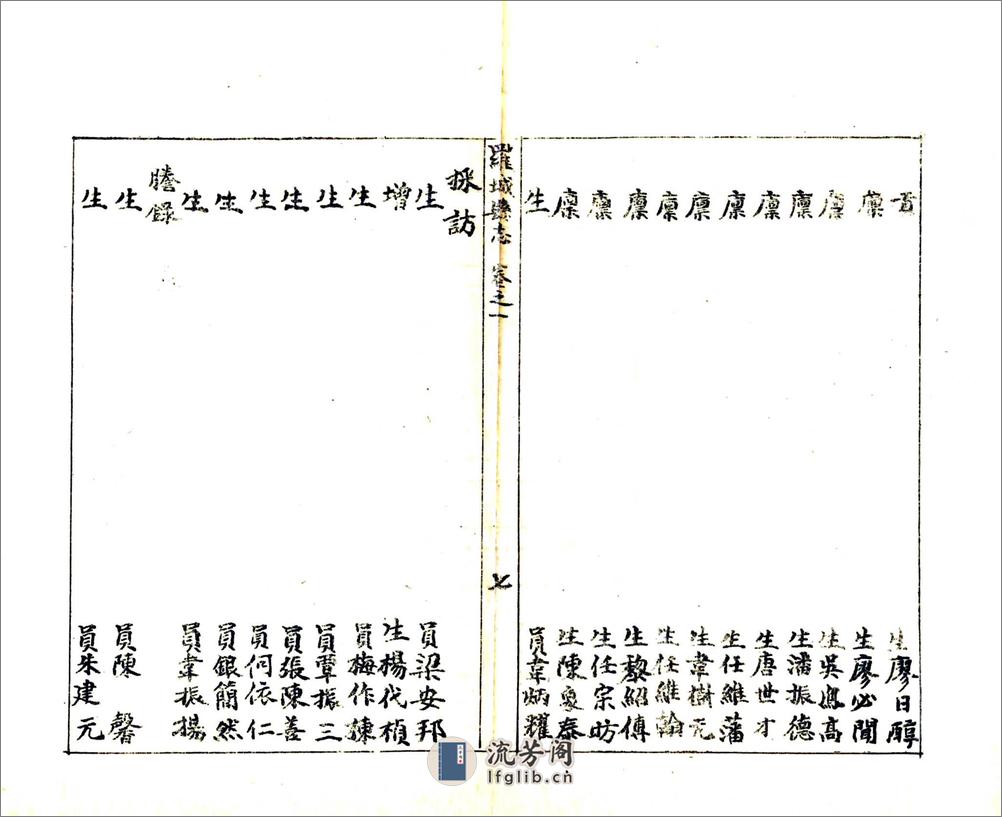 貢生廖日醇
廩生廖必聞
廩生吳鳳高
廩生潘振德
廩生唐世才
廩生任維藩
廩生韋樹元
廩生任維翰
廩生黎紹傅
廩生任宗昉
廩生陳象泰
生員韋炳耀
羅城縣志 卷之一 七
採訪
生員梁安邦
增生楊代楨
生員梅作諫
生員覃振三
生員張陳善
生員何依仁
生員銀簡然
生員韋振揚
謄錄
生員陳馨
生員朱建元
流芳阁
lfglib.cn